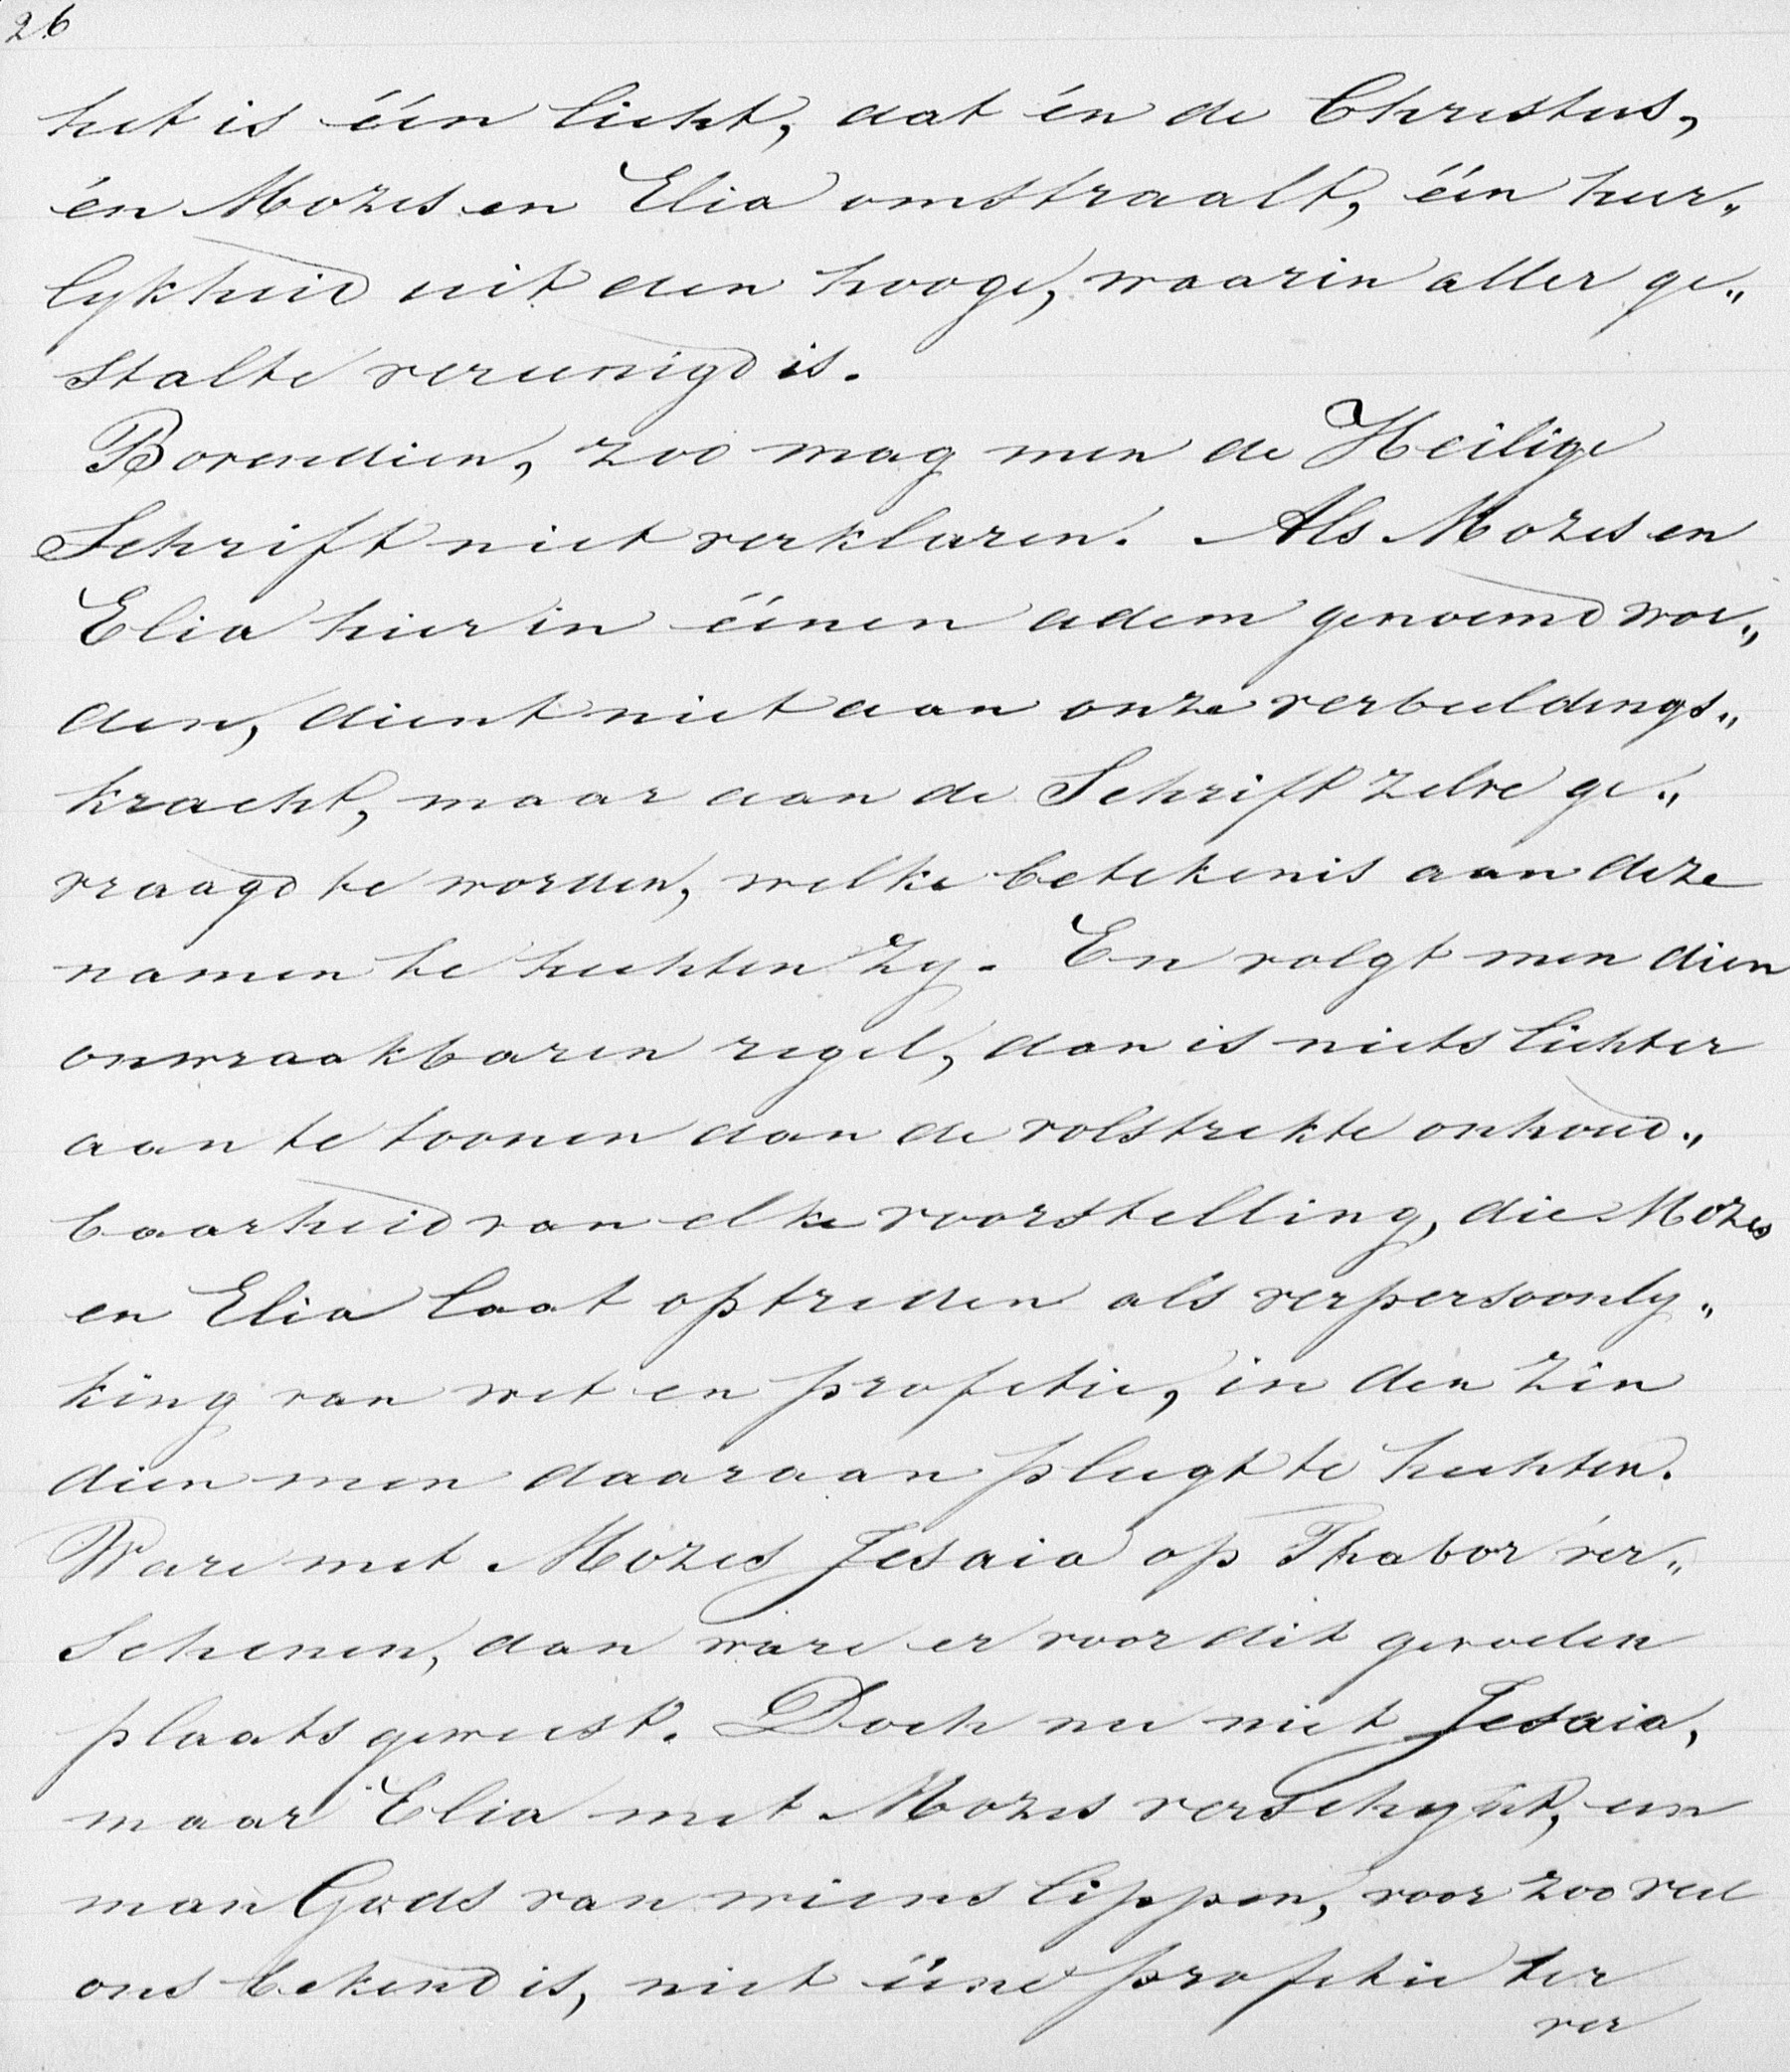 26
het is één licht, dat én de Christus,
én Mozes en Elia omstraalt, één heer„
lykheid uit den hooge, waarin aller ge„
stalte vereenigd is.
Bovendien, zoo mag men de Heilige
Schrift niet verklaren. Als Mozes en
Elia hier in éénen adem genoemd wor„
den, dient niet aan onze verbeeldings„
kracht, maar aan de Schrift zelve ge„
vraagd te worden, welke betekenis aan deze
namen te hechten zy. En volgt men dien
onwraakbaren regel, dan is niets lichter
aan te toonen dan de volstrekte onhoud„
baarheid van elke voorstelling, die Mozes
en Elia laat optreden als verpersoonly„
king van wet en profetie, in den zin
dien men daaraan pleegt te hechten.
Ware met Mozes Jesaia op Thabor ver„
schenen, dan ware er voor dit gevoelen
plaats geweest. Doch nu niet Jesaia,
maar Elia met Mozes verschynt, een
man Gods van wiens lippen, voor zoo veel
ons bekend is, niet ééne profetie ter
ver